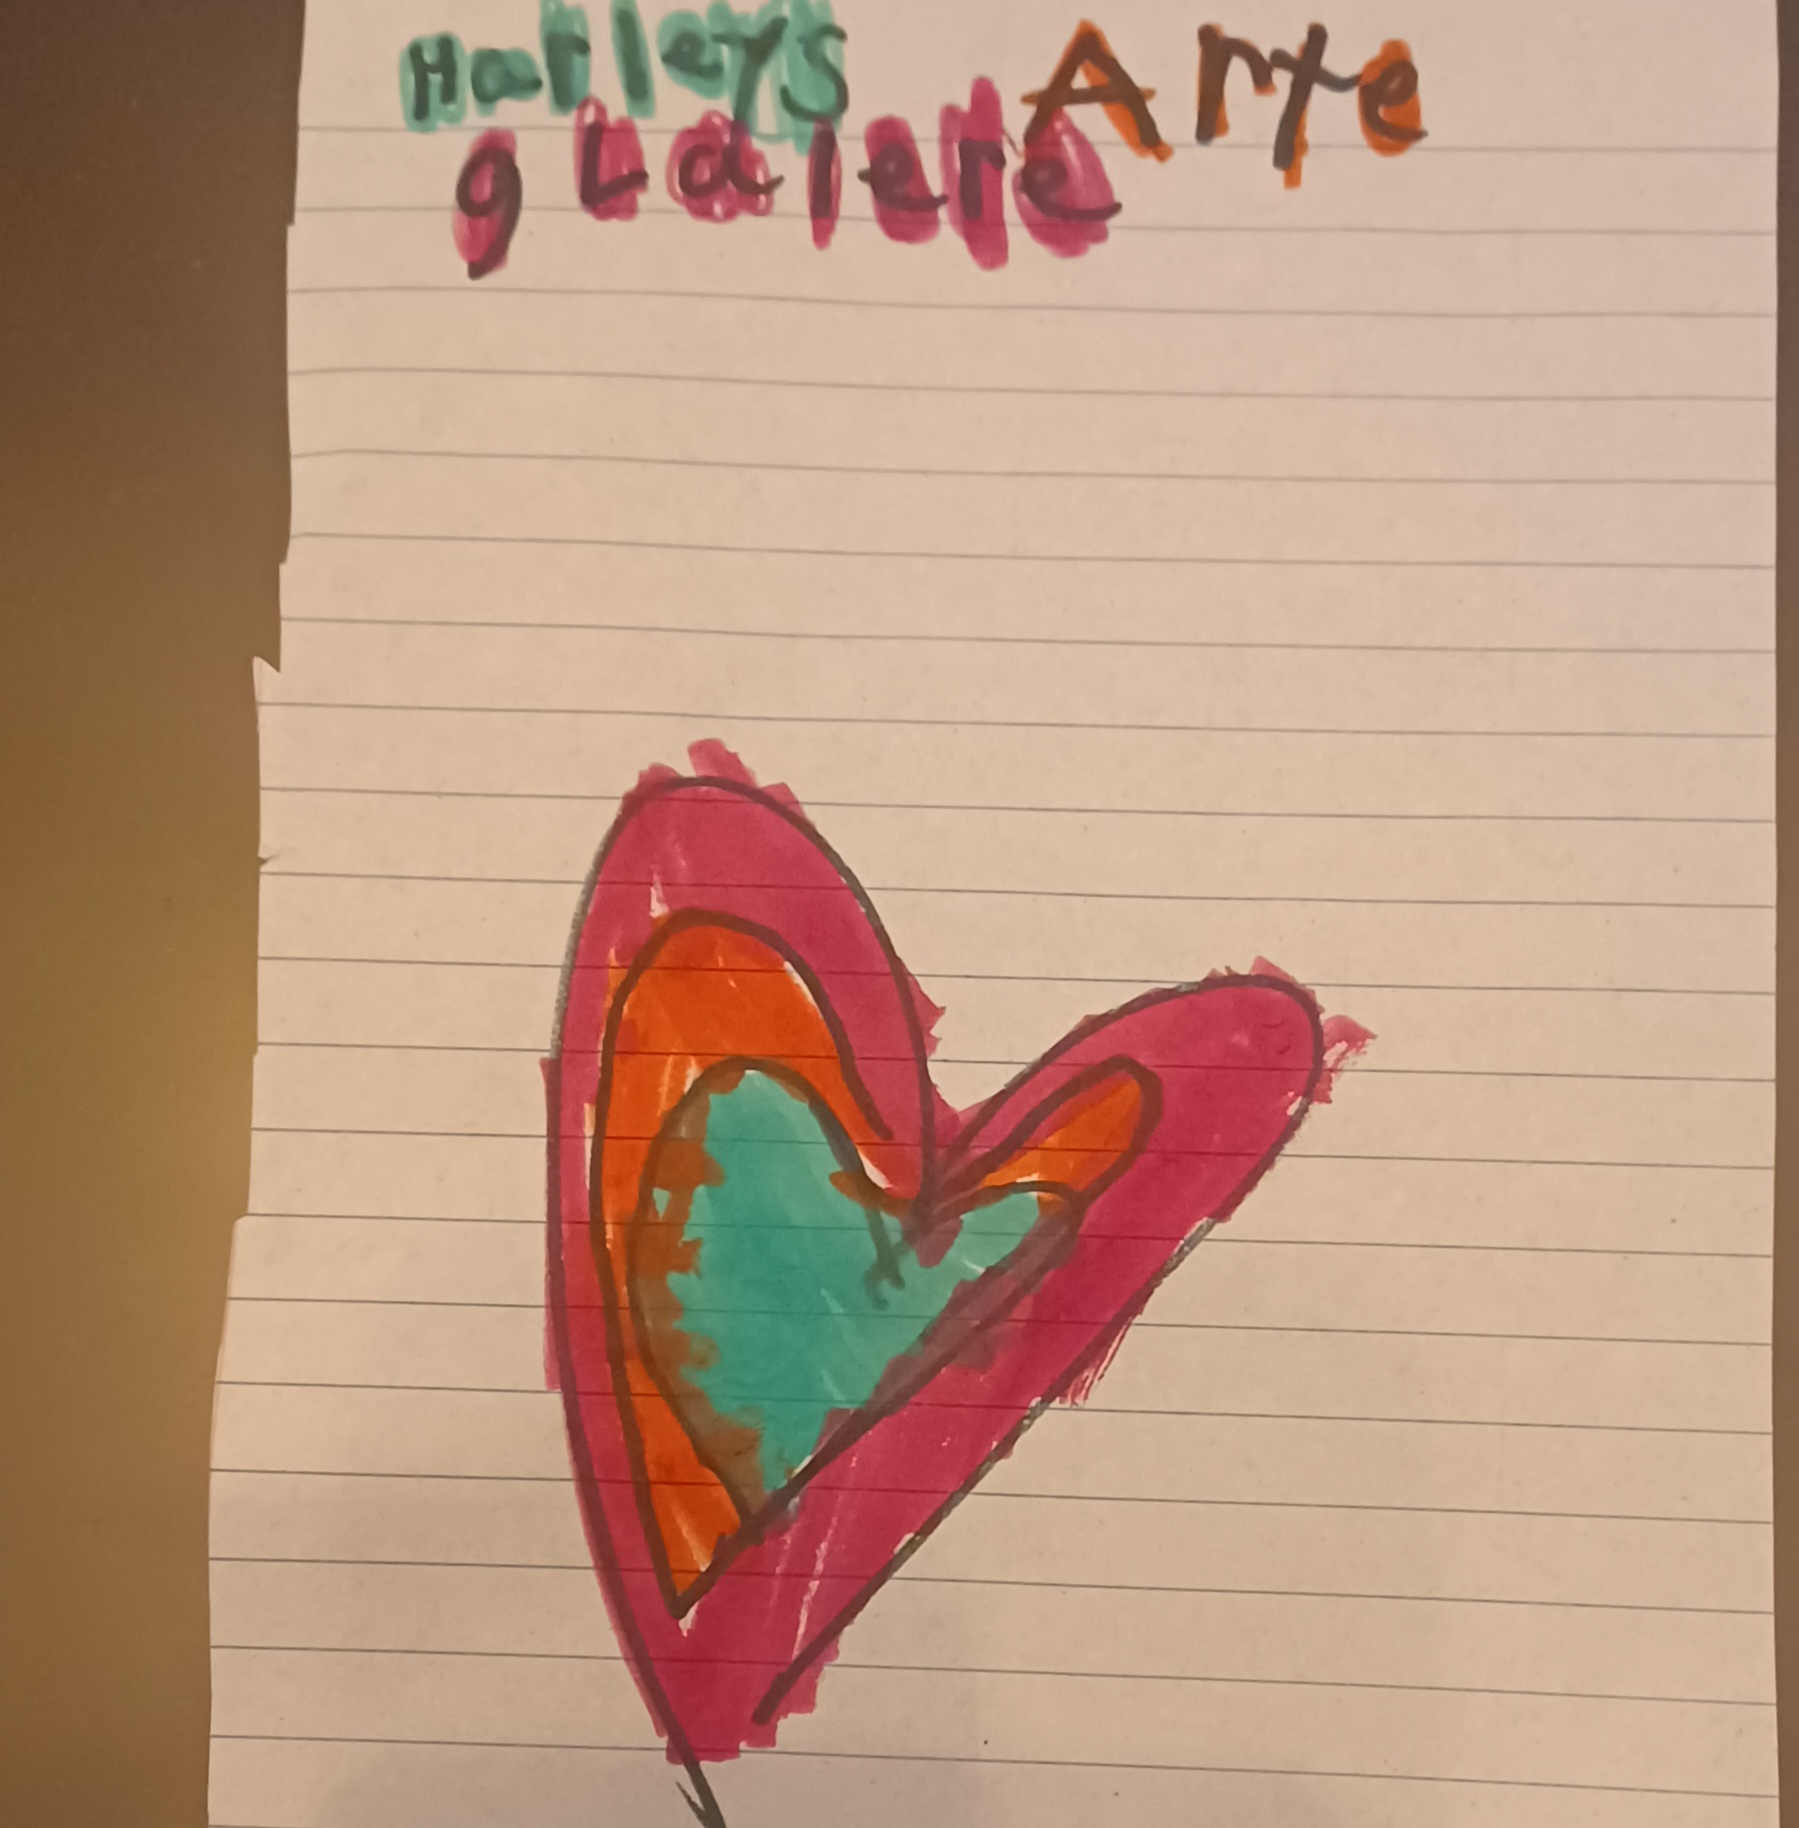 Harleys Arte
gLalere